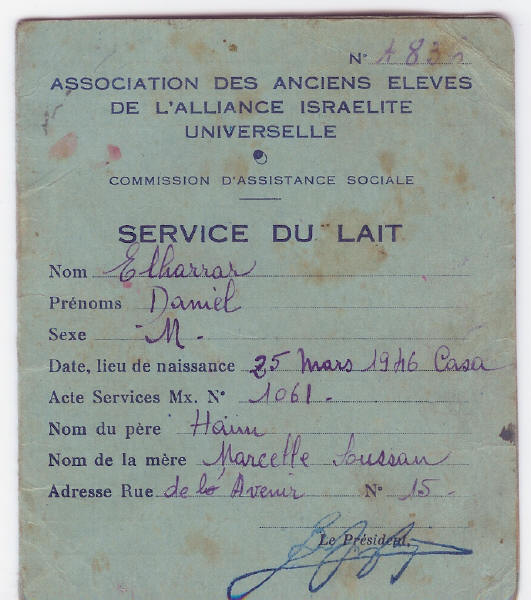 N° A 83
ASSOCIATION DES ANCIENS ELEVES
DE L'ALLIANCE ISRAELITE
UNIVERSELLE
COMMISSION D'ASSISTANCE SOCIALE
SERVICE DU LAIT
Nom Elharrar
Prénoms Daniel
Sexe M.
Date, lieu de naissance 25 Mars 1946 Casa
Acte Services Mx. N° 1061.
Nom du père Haïm
Nom de la mère Marcelle Soussan
Adresse Rue de l'Avenir N° 15.
Le Président,